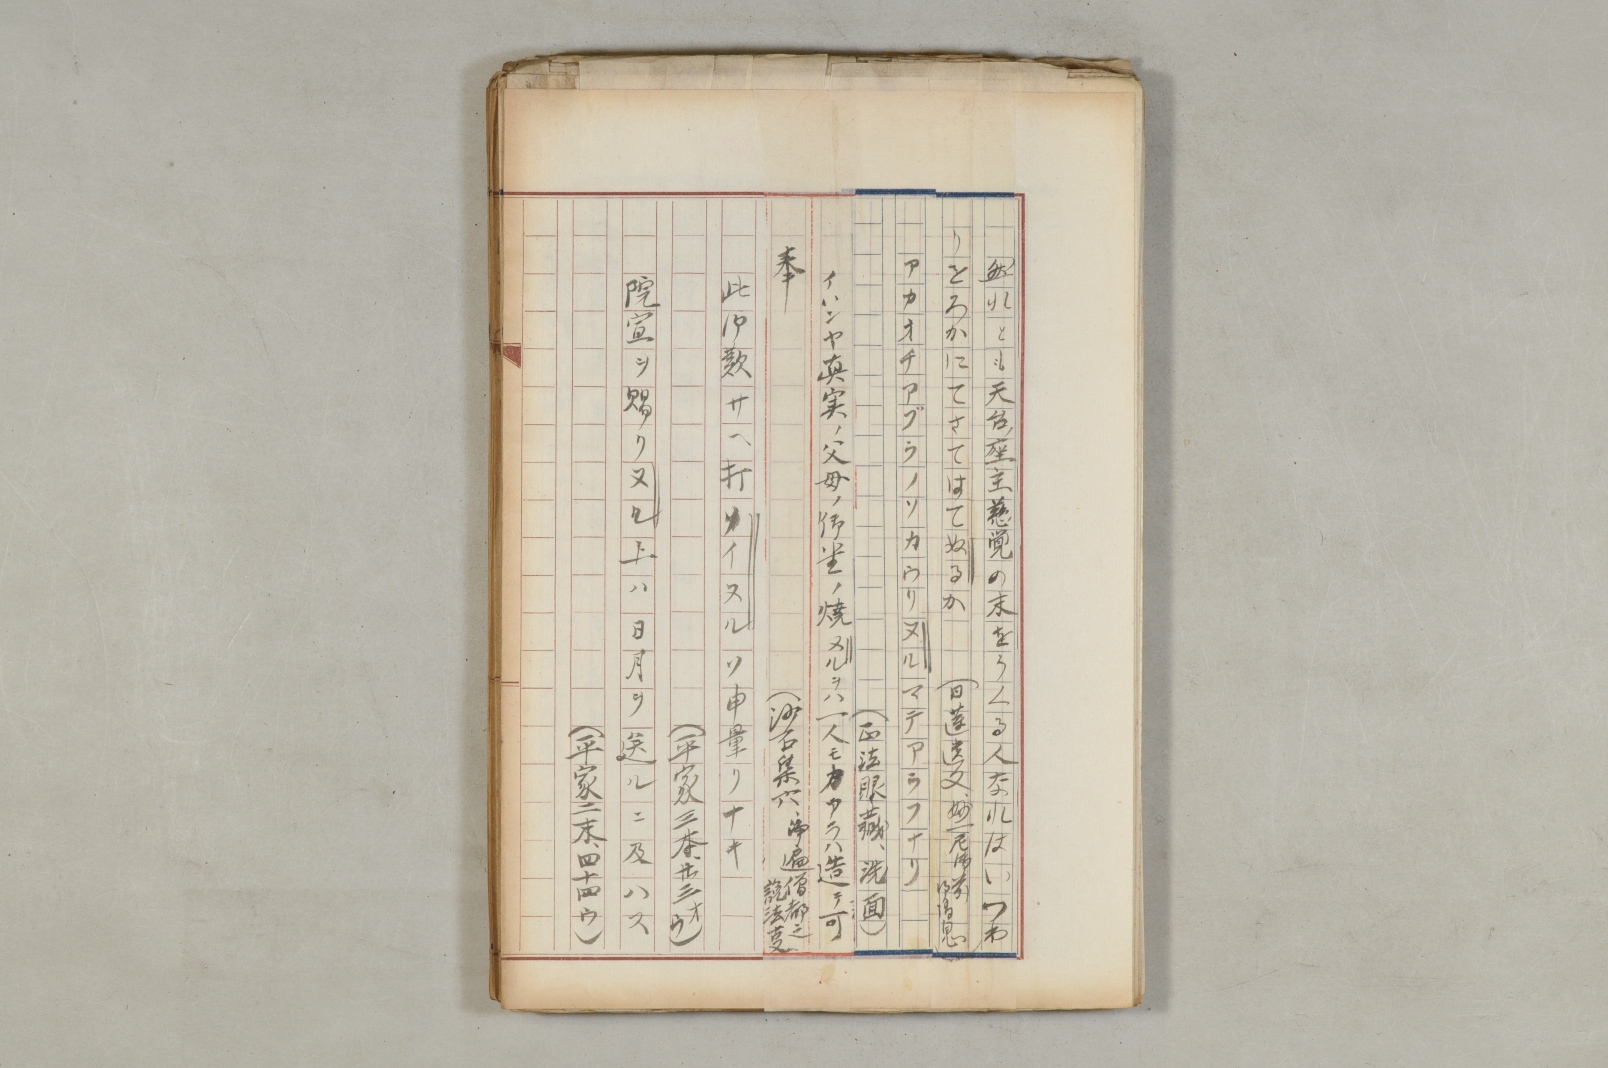 然れとも天台座主慈覚の末をうくる人なれはいつわ
りをろかにてさてはてぬるか
(日蓮遺文、妙一尼御前御消息)
アカオチアブラノソカウリヌルマデアラフナリ
(正法眼蔵、洗面)
イハンヤ真実ノ父母ノ佛堂ノ焼ヌルヲハ一人モカウラハ造テ可
奉
(沙石集六、浄遍僧都之説法事)
此御歎サヘ打ソイヌルソ申量リナキ
(平家三本、廿三オウ)
院宣ヲ賜リヌル上ハ日月ヲ送ルニ及ハス
(平家二末、四十四ウ)